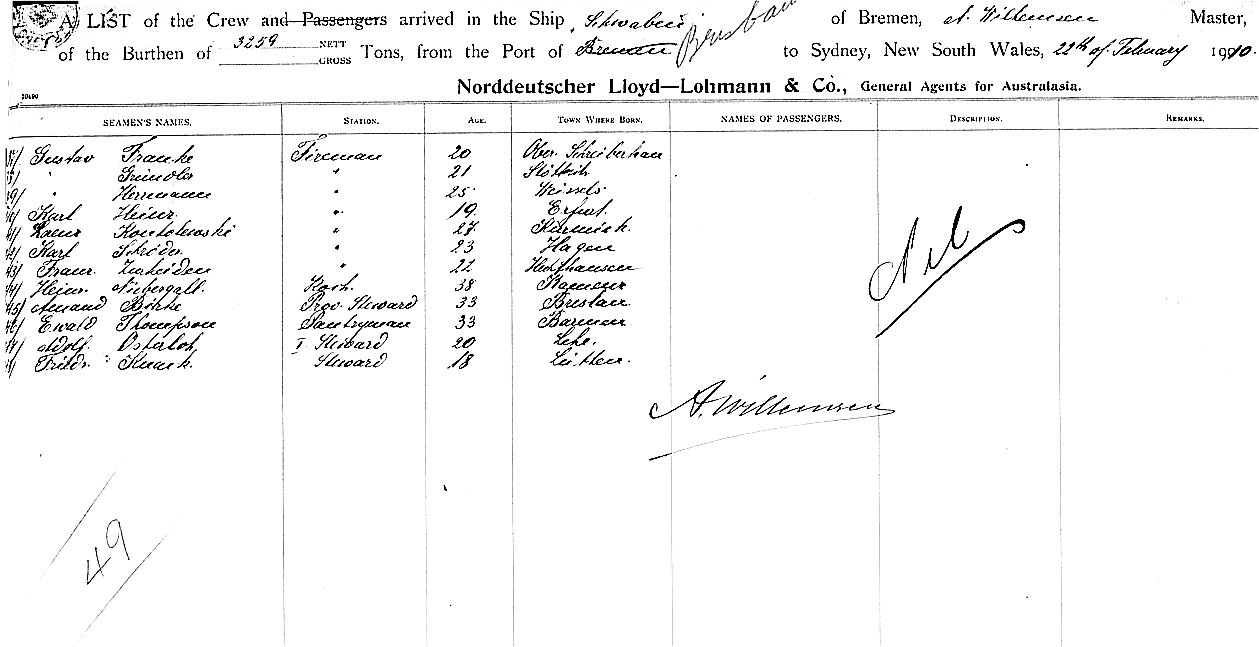 A LIST of the Crew and Passengers arrived in the Ship Schwaben of Bremen, A. Willemsen Master,
of the Burthen of 3259 NETT GROSS Tons, from the Port of Bremen Brisbane to Sydney, New South Wales, 22th of February 1910.
Norddeutscher Lloyd—Lohmann & Co., General Agents for Australasia.
SEAMEN'S NAMES. STATION. AGE. TOWN WHERE BORN. NAMES OF PASSENGERS. DESCRIPTION. REMARKS.
37/ Gustav Franke Fireman 20 Ober Schreiberhau
38/ " Gründler " 21
39/ " Herrmann " 25
40/ Karl Heinr. " 19. Erfurt.
41/ " 27
42/ Karl Schröder " 23 Hagen
43/ Franz " 22
44/ Heinr. Niebergall. Koch. 38 Kamenz
45/ Amand Prov. Steward 33 Breslau
46/ Ewald Thompson Pantryman 33 Barmen
47/ Adolf. Osterloh I Steward 20 Lehe.
Friedr. Knack. Steward 18
Nil
A. Willemsen
49